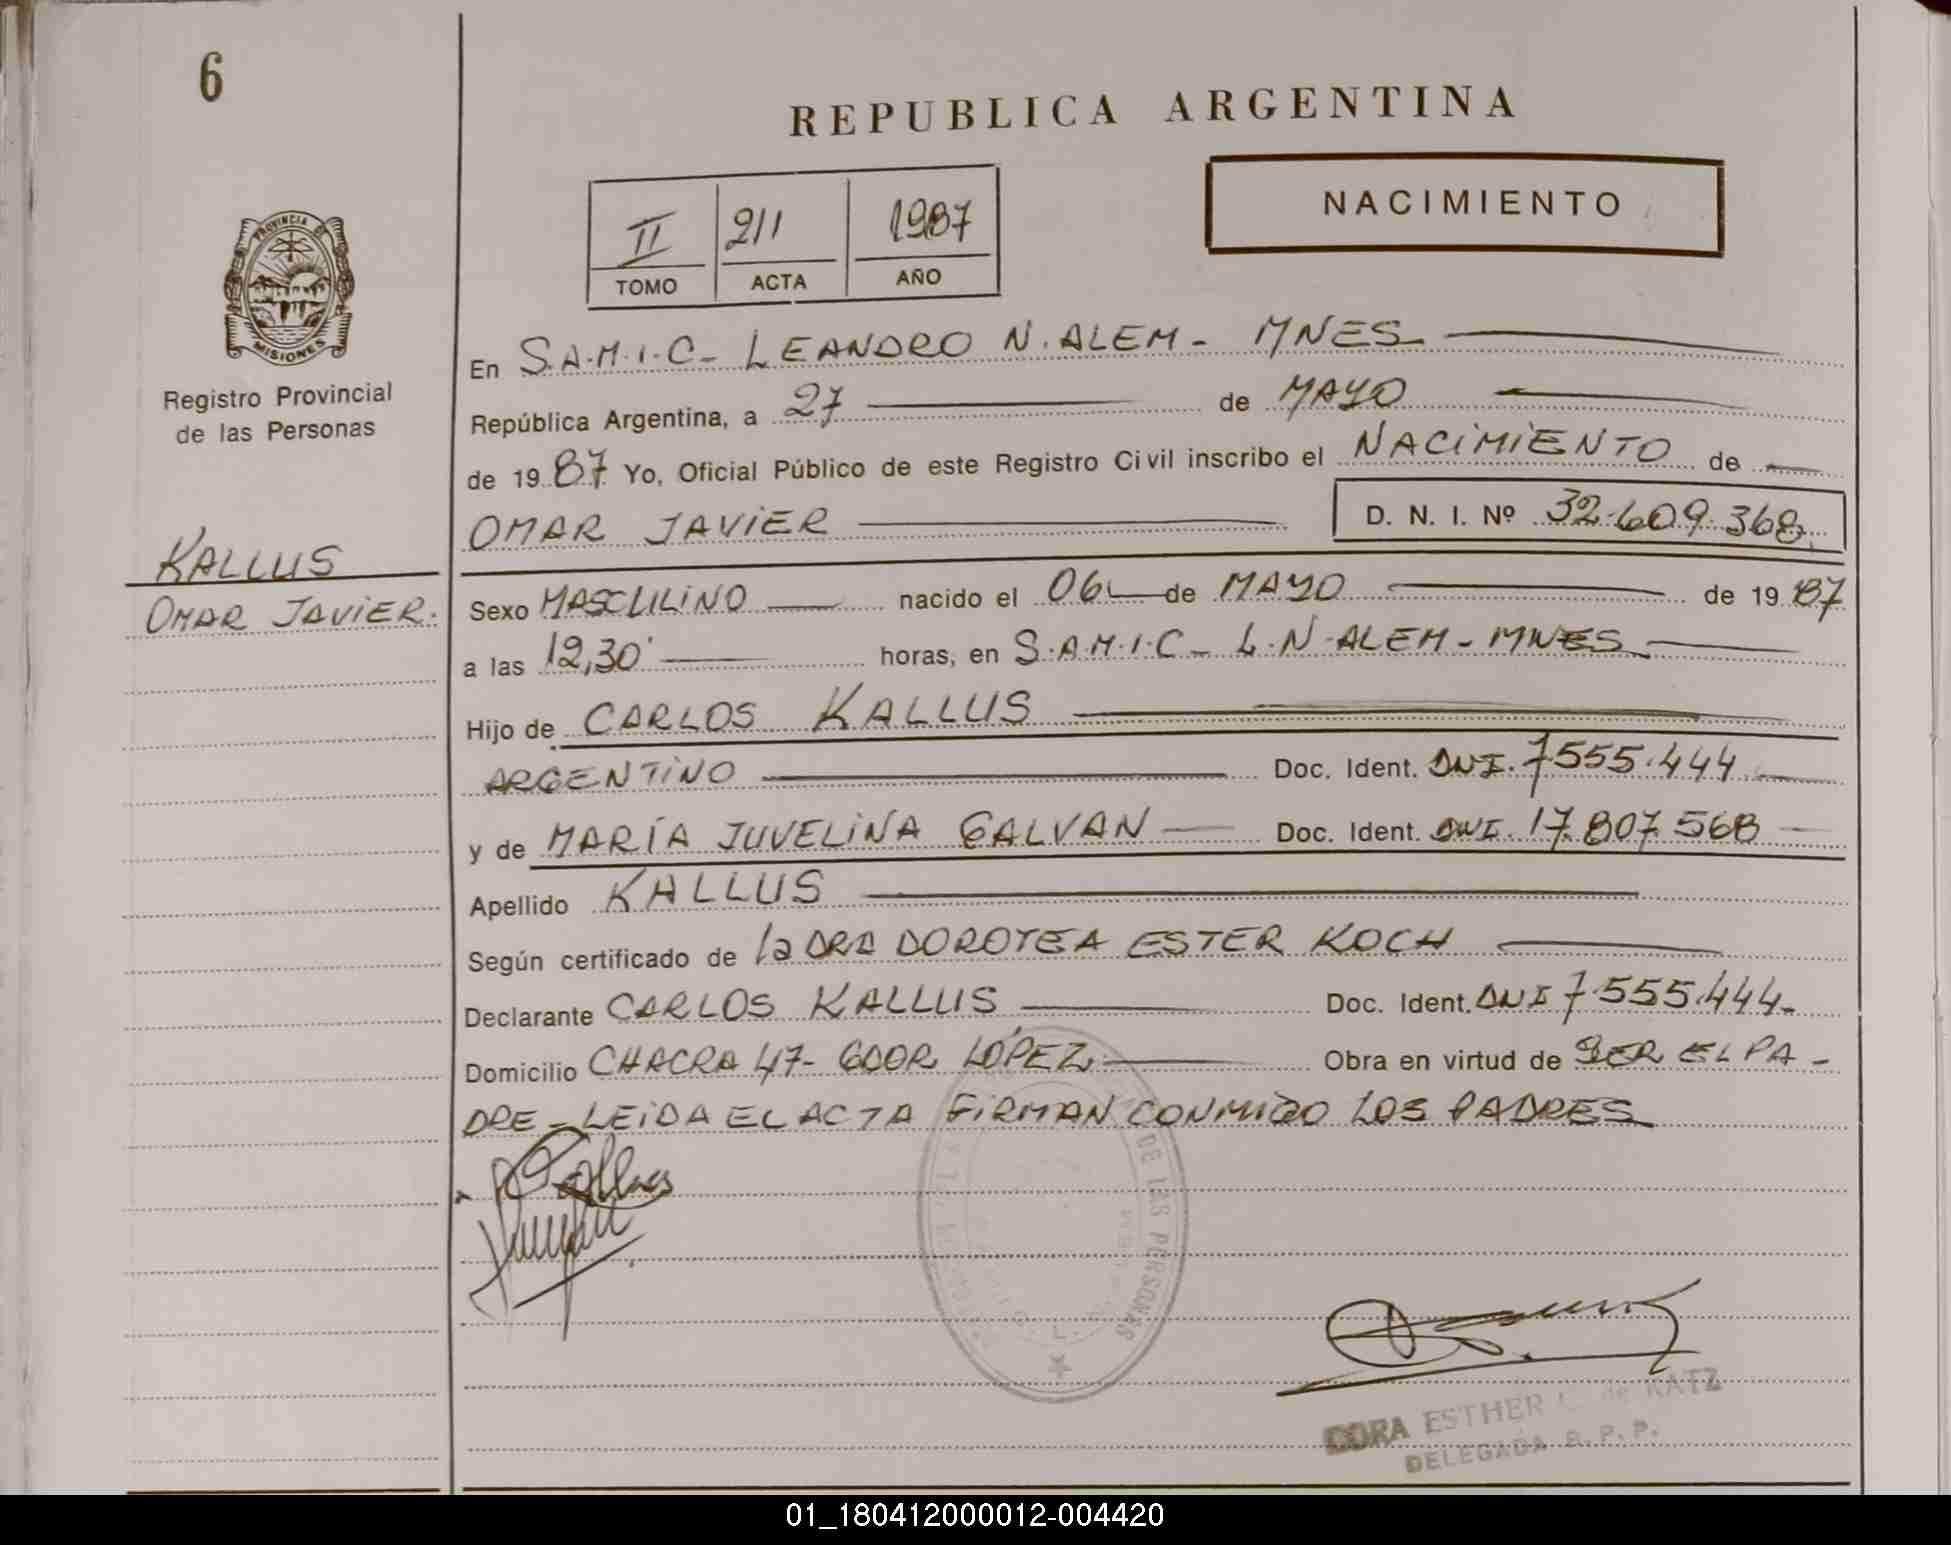 6
REPUBLICA ARGENTINA
NACIMIENTO
II 211 1987
TOMO ACTA AÑO
PROVINCIA DE
MISIONES
Registro Provincial
de las Personas
En S.A.M.I.C- LEANDRO N. ALEM - MNES
República Argentina, a 27 de MAYO
de 19 87 Yo, Oficial Público de este Registro Civil inscribo el NACIMIENTO de
OMAR JAVIER D. N. I. Nº 32.609.368
KALLUS
OMAR JAVIER.
Sexo MASCULINO nacido el 06 de MAYO de 19 87
a las 12,30' horas, en S.A.M.I.C- L.N. ALEM - MNES
Hijo de CARLOS KALLUS
ARGENTINO Doc. Ident. DNI. 7.555.444
y de MARÍA JUVELINA GALVAN Doc. Ident. DNI. 17.807.568
Apellido KALLUS
Según certificado de la DRA DOROTEA ESTER KOCH
Declarante CARLOS KALLUS Doc. Ident. DNI 7.555.444-
Domicilio CHACRA 47- GDOR. LÓPEZ Obra en virtud de SER EL PA-
DRE - LEIDA EL ACTA FIRMAN CONMIGO LOS PADRES
DE LAS PERSONAS
DORA ESTHER de KATZ
DELEGADA R. P. P.
01_180412000012-004420